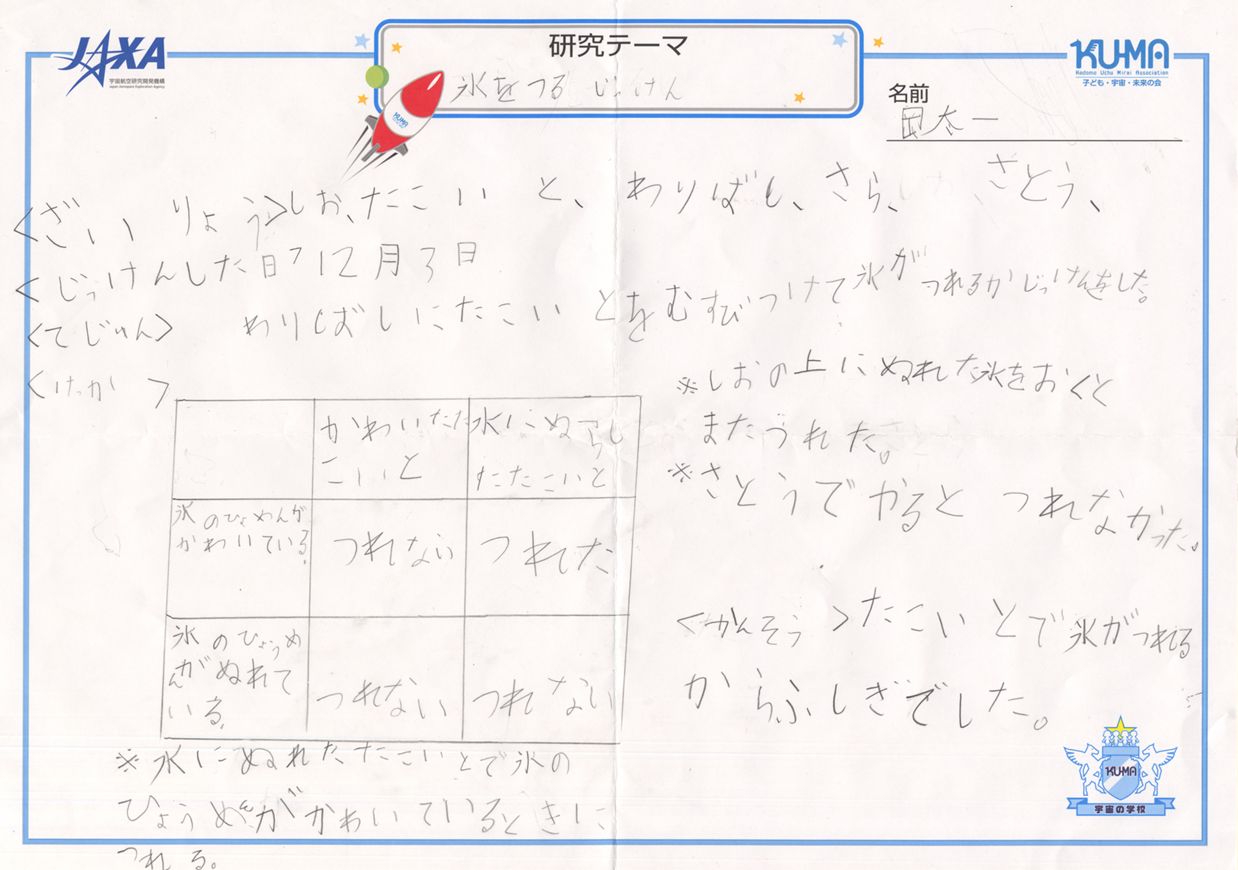 JAXA
宇宙航空研究開発機構
Japan Aerospace Exploration Agency
研究テーマ
氷をつるじっけん
KU-MA
Kodomo Uchu Mirai Association
子ども・宇宙・未来の会
名前
岡太一
KUMA
<ざいりょう>しお、たこいと、わりばし、さら、さとう、
<じっけんした日>12月3日
<てじゅん> わりばしにたこいとをむすびつけて氷がつれるかじっけんをした。
<けっか>
かわいたた
こいと
水にぬらし
たたこいと
氷のひょめんが
かわいている。
つれない
つれた
氷のひょうめ
んがぬれて
いる。
つれない
つれない
※水にぬれたたこいとで氷の
ひょうめんがかわいているときに
つれる。
※しおの上にぬれた氷をおくと
またつれた。
※さとうでやるとつれなかった。
<かんそう>たこいとで氷がつれる
からふしぎでした。
KU-MA
宇宙の学校